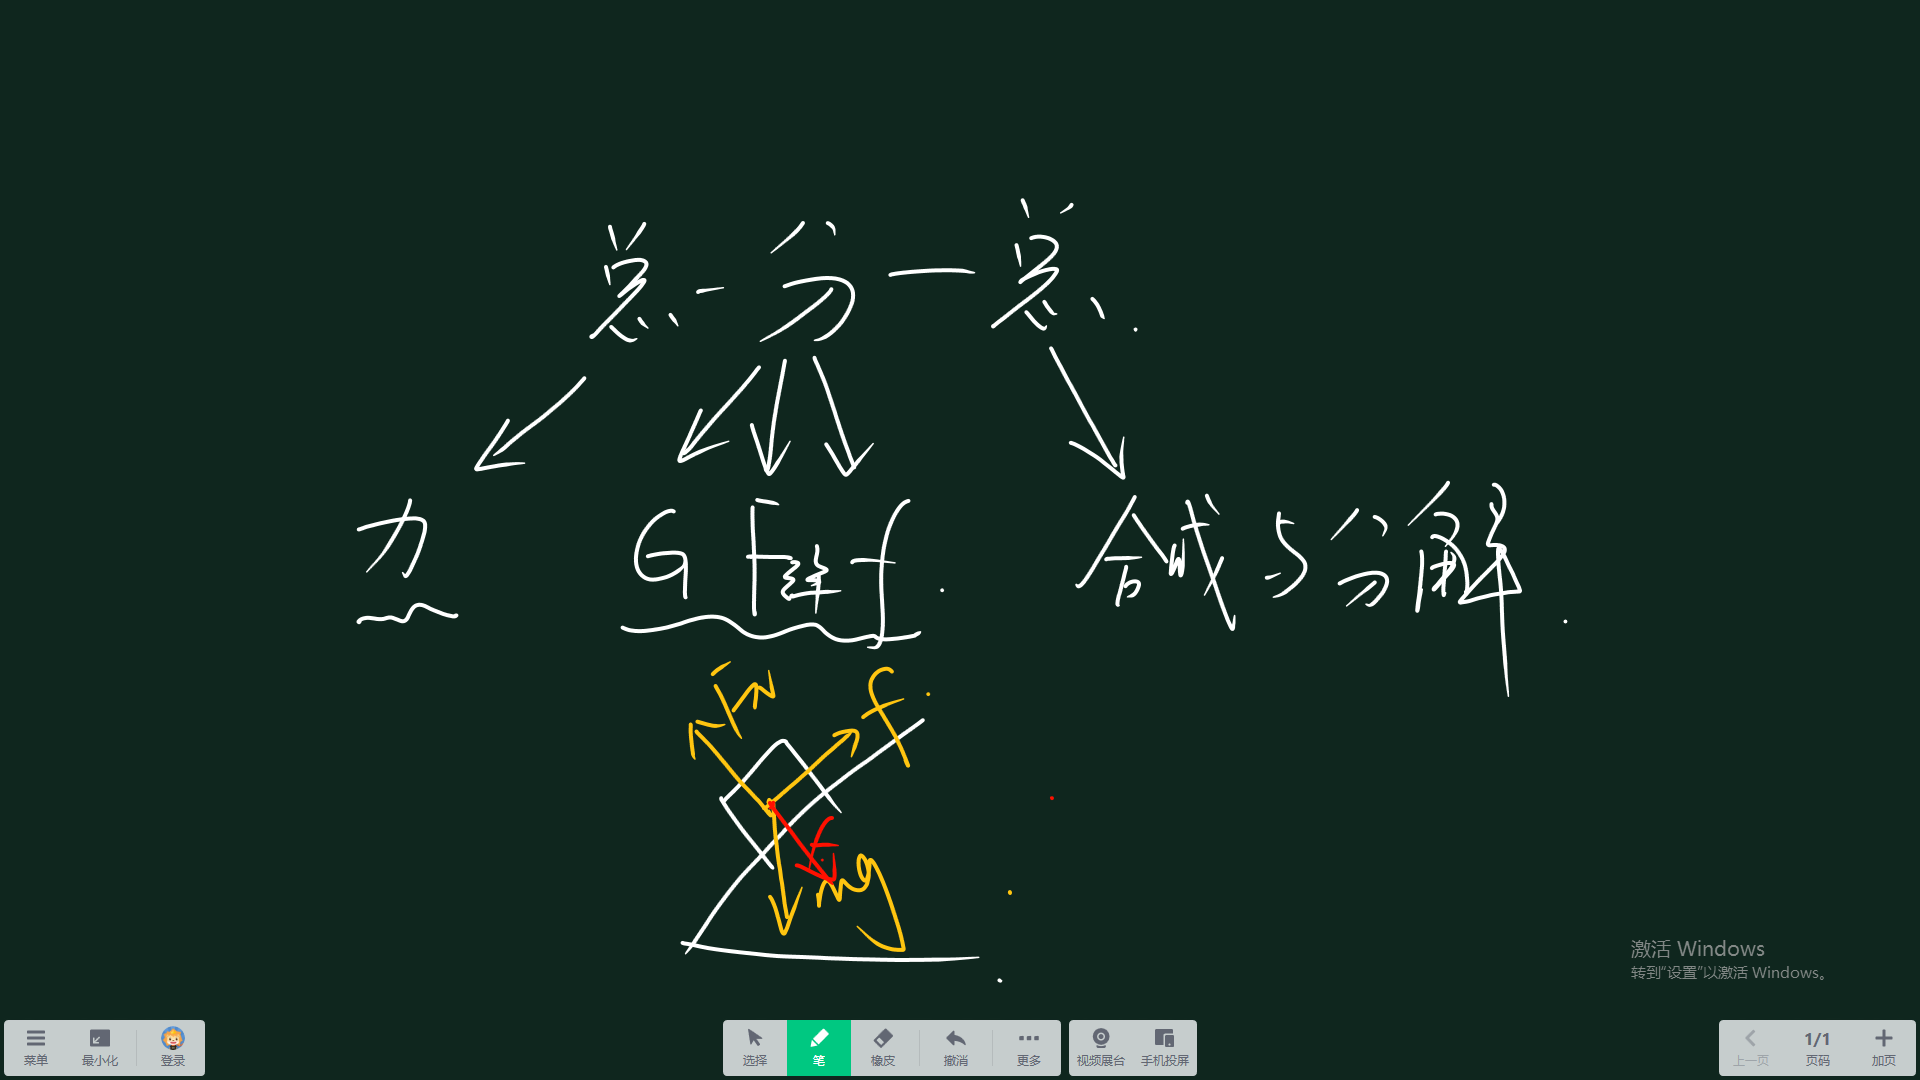 总-分一总
力 G F弹 f 合成与分解
FN f
F
mg
激活 Windows
转到“设置”以激活 Windows。
菜单 最小化 登录 选择 笔 橡皮 撤消 更多 视频展台 手机投屏 上一页 1/1 页码 加页